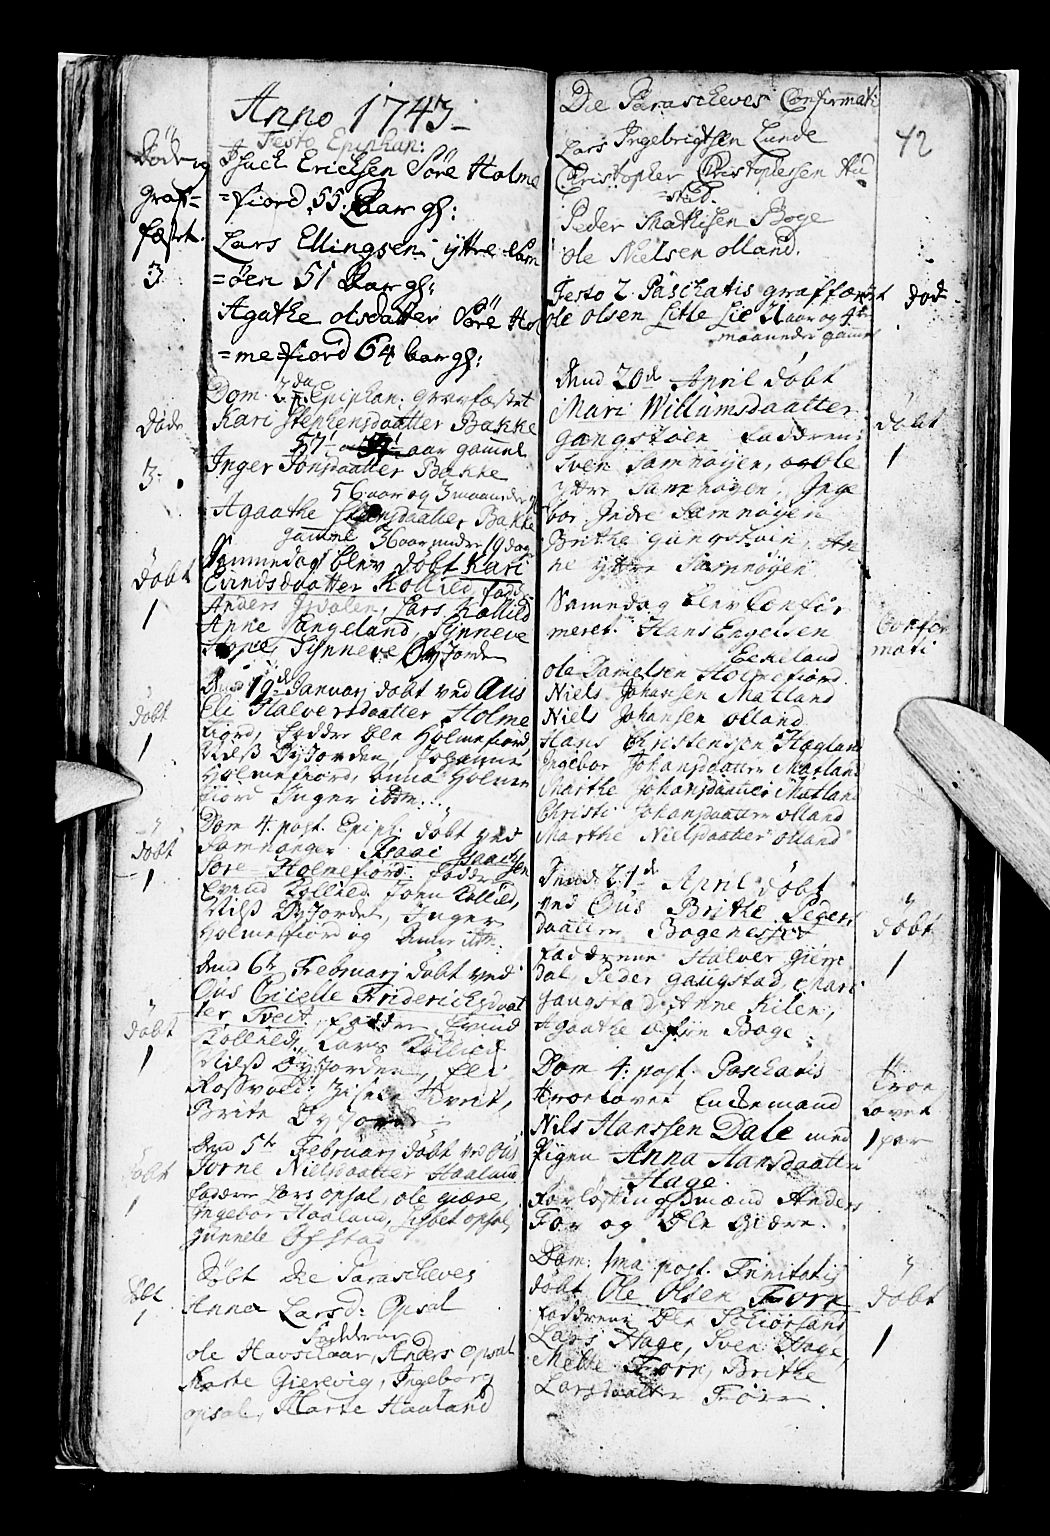 Anno 1743
Festo Epiphan:
Døde og
graf=
fæst.
3
Isach Ericksen Søre Holme
=fiord 55 Aar gl:
Lars Ellingsen yttre Sam
=øen 51 Aar gl:
Agathe olsdatter Søre Hol
=mefiord 64 aar gl:
Dom. 2da p. Epiphan. graffæstet
døde
Kari Stephensdaatter Bakke
57 aar gammel
3
Inger Jonsdaatter Bakke
56 aar og 3 maaneder
Agaathe daatter Bakke
gamme 36 aar 19 dage
døbt
1
Sammedag blev døbt Kari
Eivindsdaatter Kollild, fadd:
Anders Lars Kollild
Anne Tangeland, Synneve
Synneve Øyjorde
døbt
1
Dend 19de Januarj døbt ved Aus
Eli Halversdaatter Holme
fiord, Faddr Ole Holmefiord,
Nilss Øyjorden, Johanne
Holmefiord, anna Holme
fiord Inger ibm.
døbt
1
Dom 4. post. Epiph: døbt ved
Samnanger Isaac Isaachsen
Søre Holmefiord: Fadder
Eivind Kollild, Joen Kollild,
Nilss Øyjordet, Inger
Holmefiord og ibm.
døbt
1
dend 6te Februarj døbt ved
Ous Cicelle Friderichsdaat
ter Tveit, fadder Eivind
Kollild, Lars Kollild
Nilss Øyjorden, Eli
Rossvold, Tveit,
Brite Øyjorde
døbt
1
Dend 5te Februarj døbt ved Ous
Jorne Nielsdaatter Haaland
faddere Lars opsal, ole giære,
Ingebor Haaland, Lisbet opsal,
Gunnele Ofstad
Døbt Die Parascheves
1
Anna Larsd: Opsal
Faddere
ole Havschaar, Anders opsal
Marte Gierevig, Ingeborg
opsal, Marte Haaland
Die Parascheves Confirmati
42
Lars Ingebrigtsen Lunde
Christopher Christophersen Hu
=stad.
Peder Mathisen Boge
ole Nielsen olland.
Festo 2. Paschatis graffæstet
død
ole olsen Litle Lie 21 aar og 4
maaneder gammel
dend 20de April døbt
Mari Willumsdaatter
døbt
1
gangstøen Faddren:
Sven Samnøyen, og Ole
yttre Samnøyen, Inge
bor Indre Samnøyen
Brithe gangstøen, An
ne yttre Samnøyen
Samedag blev Confir
Confir
mati
meret. Hans Engelsen
Eikeland
ole Danielsen Holmefiord
Niels Johansen Matland
Niels Johansen olland
Hans Christensen Hagland
Ingebor Johansdaatter Matland
Marthe Johansdaatter Matland
Christi Johansdaatter olland
Marthe Nielsdaatter olland
Dend 21de April døbt
døbt
1
ved Ous Brithe Peders
daatter Bogenesset
faddrene Halver Gierre
dal, Peder gangstad, Mari
gangstad, Anne Kilen,
Agaathe øfstre Boge
Dom 4: post. Paschatis
troe
lovet
1 par
troelovet Ledemand
Nils Hanssen Dale med
Pigen Anna Hansdaatter
Hage.
Forlofningsmænd Anders
For og Ole Giære.
Dom: 1ma post. Trinitatis
døbt
1
døbt Ole Olsen Forr
faddrene Ole
Lars Hage, Sven Hage,
Mette Forr, Brithe
Larsdaatter Forr